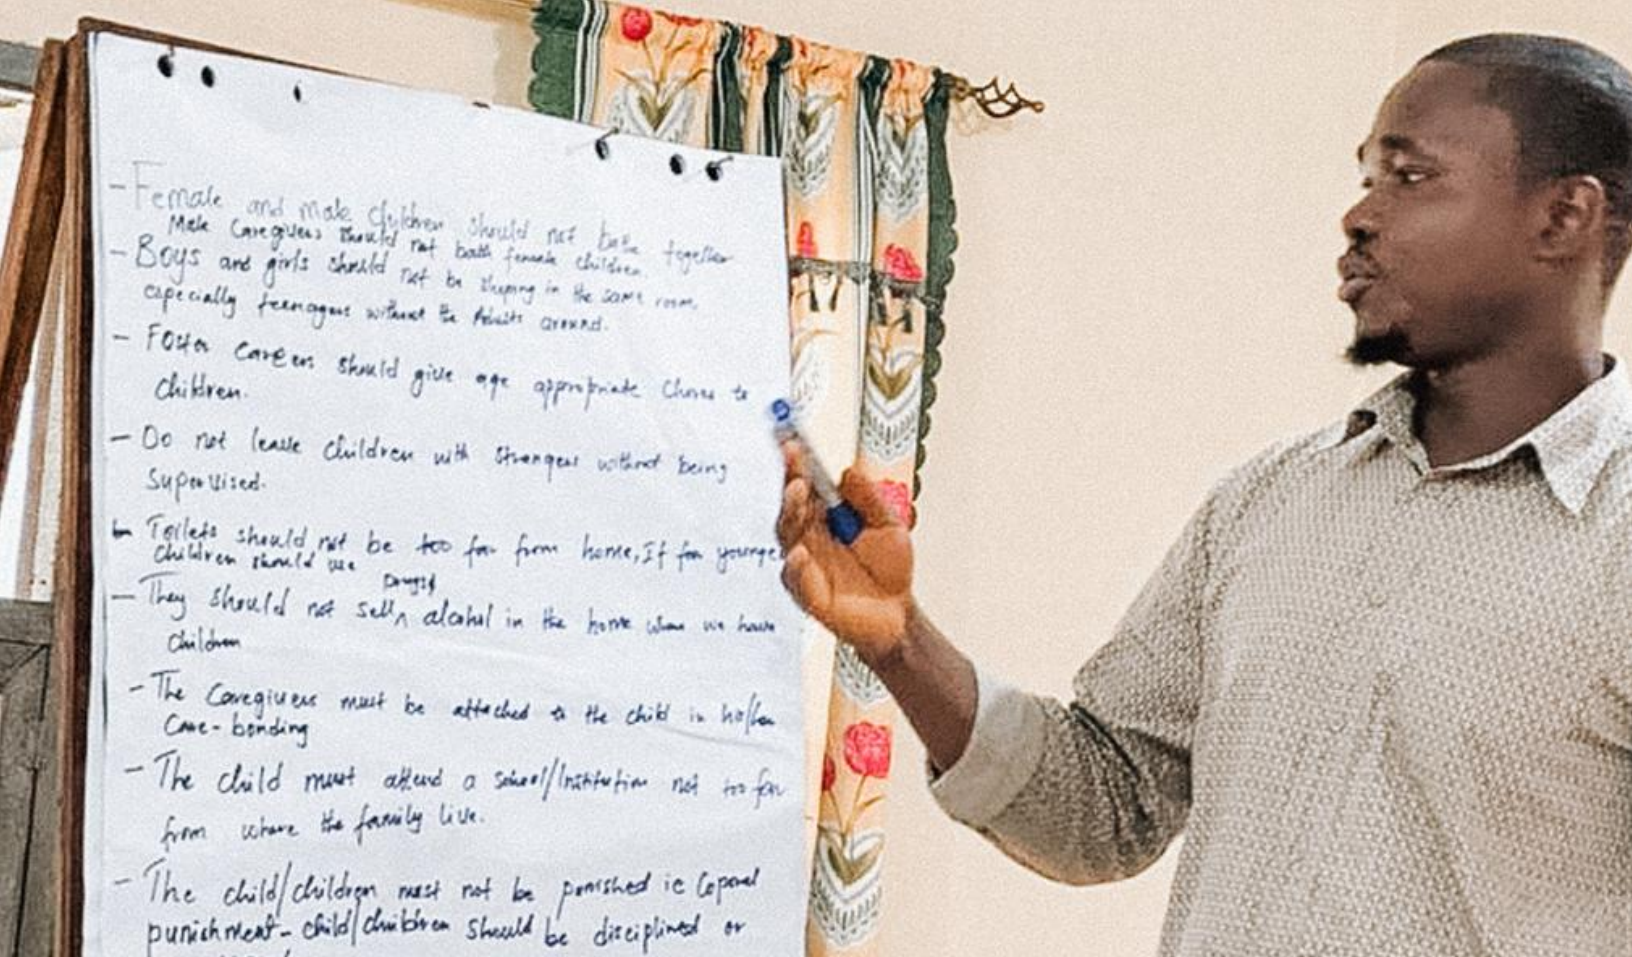 - Female and male children should not bathe together
Male Caregivers should not bath female children.
- Boys and girls should not be sleeping in the same room,
especially teenagers without the Adults around.
- Foster Careers should give age appropriate Chores to
Children.
- Do not leave Children with strangers without being
Supervised.
- Toilets should not be too far from home, If far younger
Children should use
Drugs/
- They should not sell ^ alcohol in the home where we have
Children
- The Caregivers must be attached to the child in his/her
Care- bonding
- The child must attend a school/Institution not too far
from where the family live.
- The child/children must not be punished ie Coporal
punishment- child/children should be disciplined or